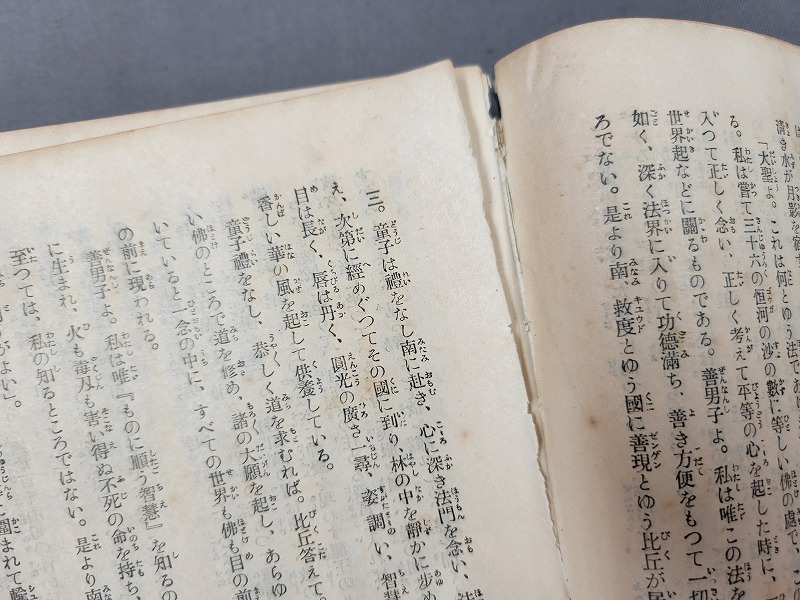 清き水が月影を宿
「大聖よ。これは何とゆう法であ
る。私は嘗て三十六の恒河の沙の數に等しい佛の處で、こ
入つて正しく念い、正しく考えて平等の心を起した時に、
世界起などに關るものである。善男子よ。私は唯この法を
如く、深く法界に入りて功德滿ち、善き方便をもつて一切
ろでない。是より南、救度とゆう國に善現とゆう比丘が居
三。童子は禮をなし南に赴き、心に深き法門を念い、
え、次第に經めぐつてその國に到り、林の中を靜かに步め
目は長く、唇は丹く、圓光の廣さ一尋、姿調い、智慧
香しい華の風を起して供養している。
童子禮をなし、恭しく道を求むれば。比丘答えて。
い佛のところで道を修め、諸の大願を起し、あらゆ
いていると一念の中に、すべての世界も佛も目の前
の前に現われる。
善男子よ。私は唯『ものに順う智慧』を知るの
に生まれ、火も毒刄も害い得ぬ不死の命を持ち、
至つては、私の知るところではない。是より南
がよい」。
圍まれて